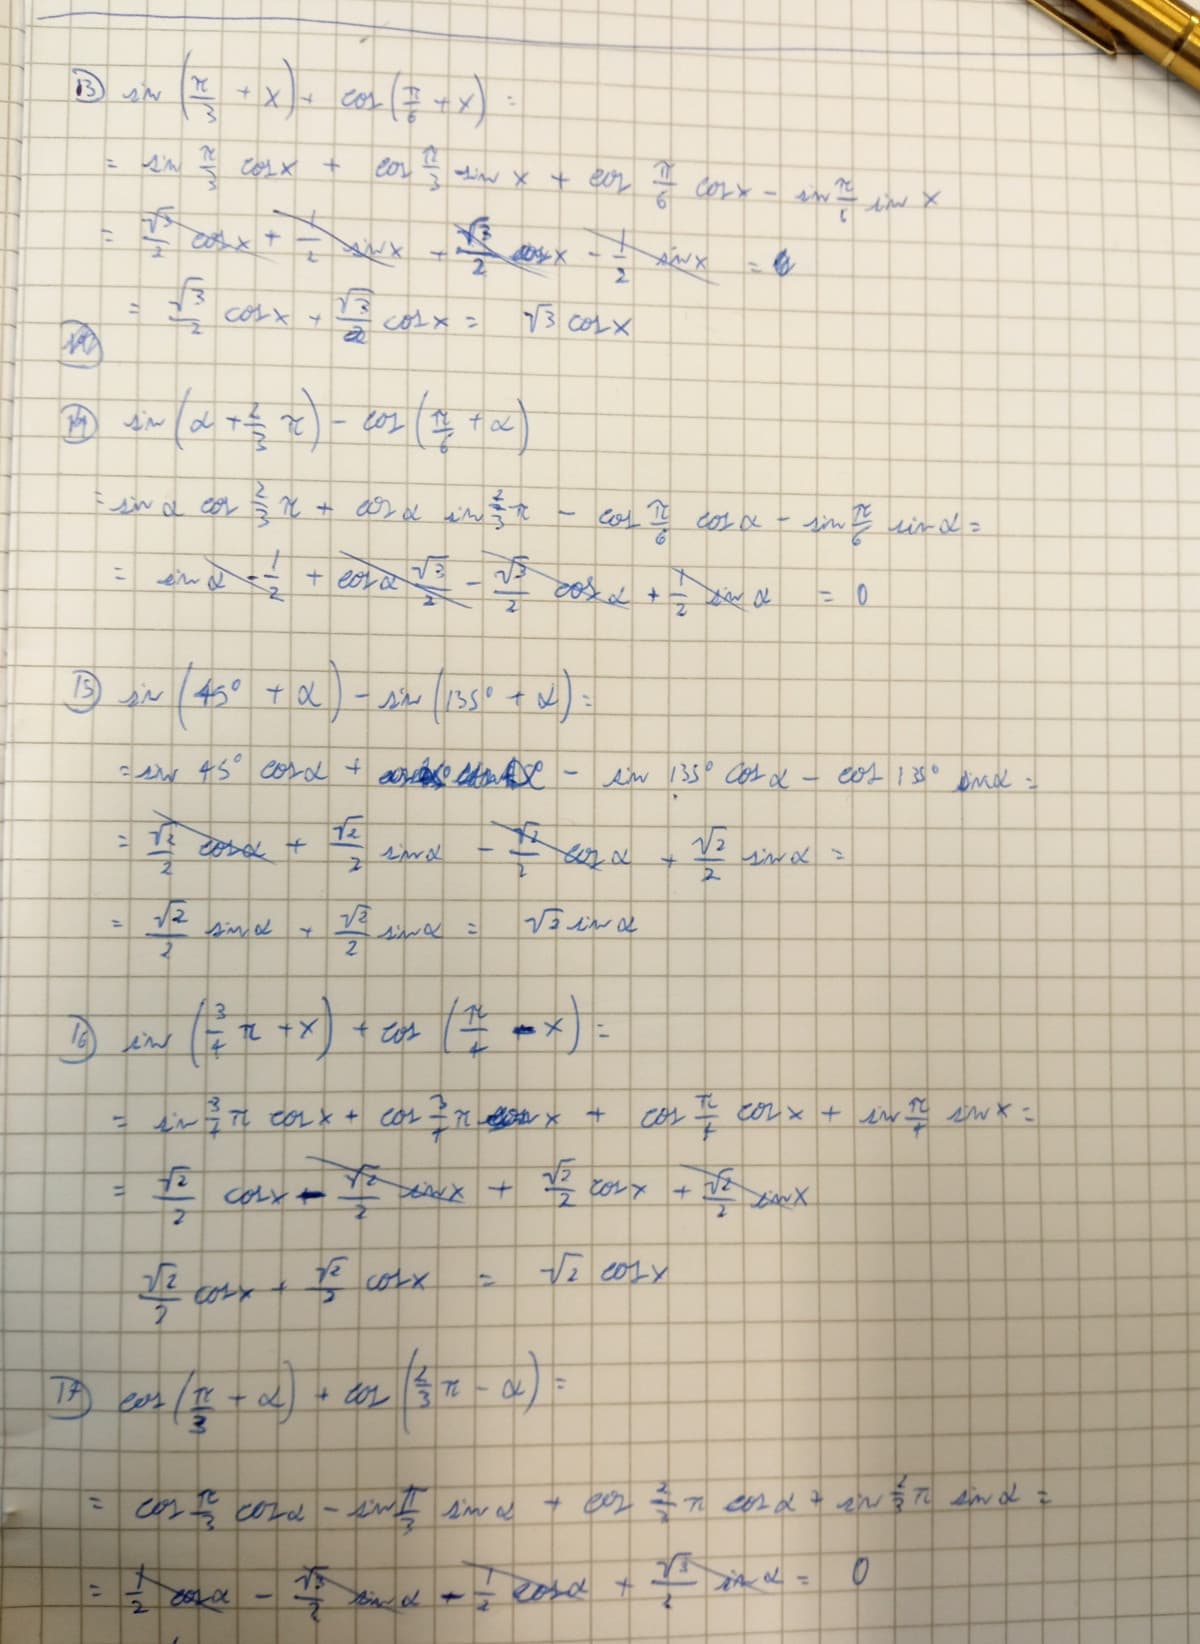 13) sin (π/3 + x) + cos (π/6 + x) =
= sin π/3 cos x + cos π/3 sin x + cos π/6 cos x - sin π/6 sin x
= √3/2 cos x + 1/2 sin x + √3/2 cos x - 1/2 sin x =
= √3/2 cos x + √3/2 cos x = √3 cos x
14) sin (α + 2/3 π) - cos (π/6 + α)
= sin α cos 2/3 π + cos α sin 2/3 π - cos π/6 cos α - sin π/6 sin α =
= sin α - 1/2 + cos α √3/2 - √3/2 cos α + 1/2 sin α = 0
15) sin (45° + α) - sin (135° + α) =
= sin 45° cos α + - sin 135° cos α - cos 135° sin α =
= √2/2 cos α + √2/2 sin α - √2/2 cos α + √2/2 sin α =
= √2/2 sin α + √2/2 sin α = √2 sin α
16) sin (3/4 π + x) + cos (π/4 - x) =
= sin 3/4 π cos x + cos 3/4 π x + cos π/4 cos x + sin π/4 sin x =
= √2/2 cos x - √2/2 sin x + √2/2 cos x + √2/2 sin x
√2/2 cos x + √2/2 cos x = √2 cos x
17) cos (π/3 + α) + cos (2/3 π - α) =
= cos π/3 cos α - sin π/3 sin α + cos 2/3 π cos α + sin 2/3 π sin α =
= 1/2 cos α - √3/2 sin α - 1/2 cos α + √3/2 sin α = 0